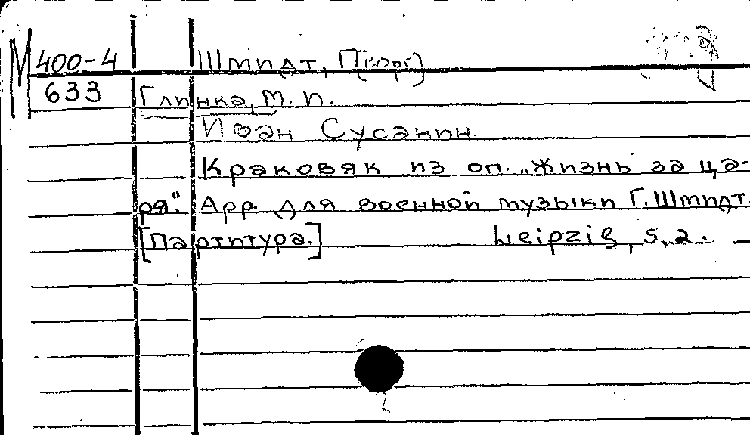 М 400-4 Шмидт, Г[еорг]
633 Глинка, М. И.
Иван Сусанин
Краковяк из оп. „Жизнь за ца-
ря". Арр. для военной музыки Г. Шмидт.
[Партитура.] Leipzig, s. a.